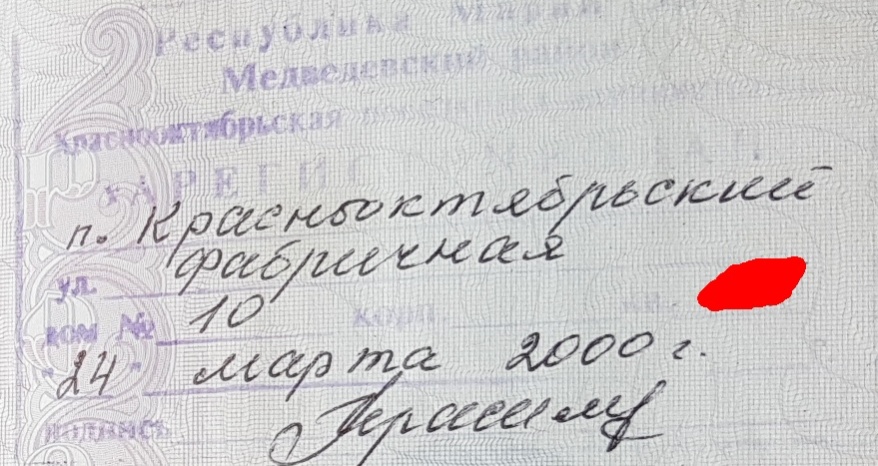 Республика Марий Эл
Медведевский район
Краснооктябрьская
ЗАРЕГИСТРИРОВАН
п. Краснооктябрьский
ул. Фабричная
дом № 10 корп. кв.
"24" марта 2000 г.
подпись